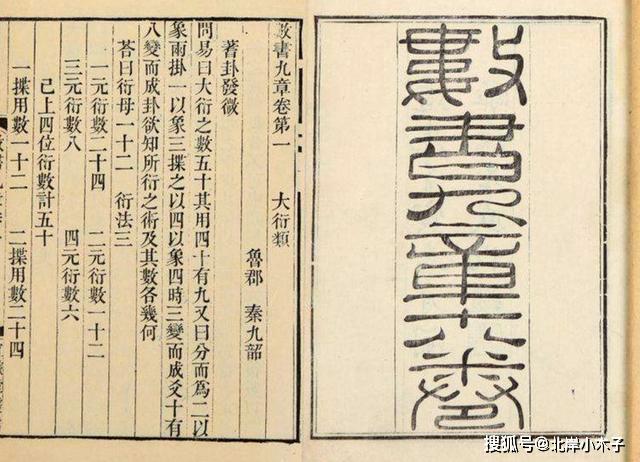 數書九章十八卷
數書九章卷第一　大衍類
魯郡　秦九韶
蓍卦發微
問易曰大衍之數五十其用四十有九又曰分而爲二以
象兩掛一以象三揲之以四以象四時三變而成爻十有
八變而成卦欲知所衍之術及其數各幾何
荅曰衍母一十二　衍法三
一元衍數二十四　二元衍數一十二
三元衍數八　四元衍數六
已上四位衍數計五十
一揲用數一十二　二揲用數二十四
搜狐号@北岸小木子